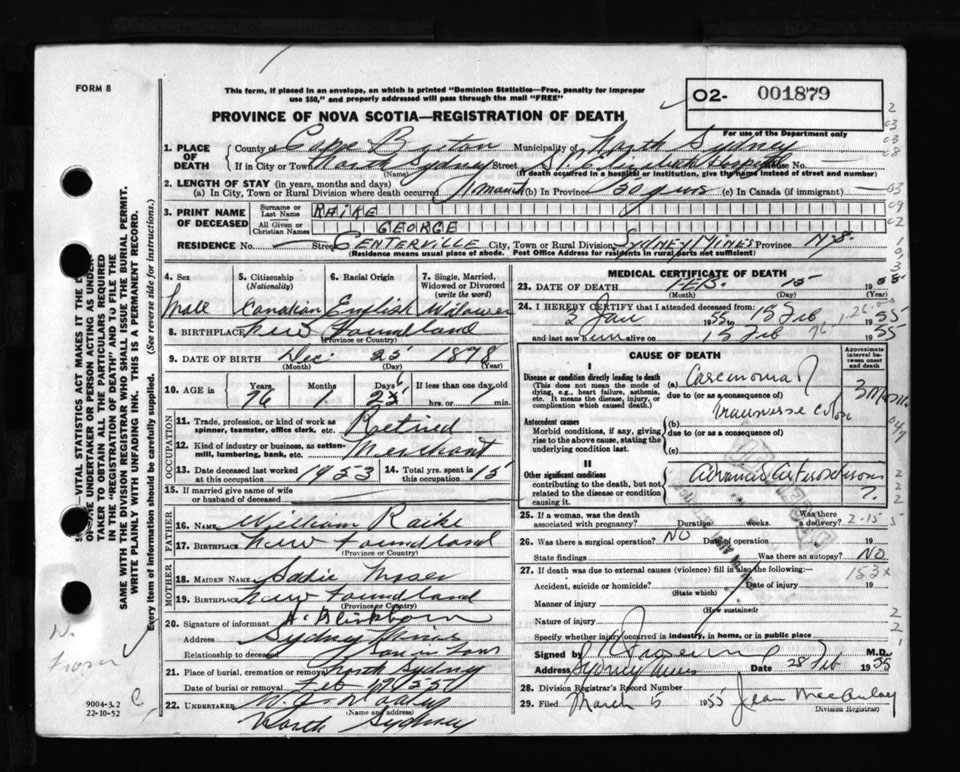 FORM 8
This form, if placed in an envelope, on which is printed "Dominion Statistics—Free, penalty for improper
use $50," and properly addressed will pass through the mail "FREE"
02- 001879
For use of the Department only
PROVINCE OF NOVA SCOTIA—REGISTRATION OF DEATH
1. PLACE OF DEATH County of Cape Breton Municipality of North Sydney
If in City or Town North Sydney Street St Elizabeth Hospital No.
(Name) (If death occurred in a hospital or institution, give the name instead of street and number)
2. LENGTH OF STAY (in years, months and days)
(a) In City, Town or Rural Division where death occurred 1 month (b) In Province 50 yrs (c) In Canada (if immigrant) —
3. PRINT NAME OF DECEASED Surname or Last Name RAIKE
All Given or Christian Names GEORGE
RESIDENCE No. — Street CENTERVILLE City, Town or Rural Division SYDNEY MINES Province N.S.
(Residence means usual place of abode. Post Office Address for residents in rural parts not sufficient)
4. Sex Male
5. Citizenship (Nationality) Canadian
6. Racial Origin English
7. Single, Married, Widowed or Divorced (write the word) Widower
8. BIRTHPLACE New Foundland
(Province or Country)
9. DATE OF BIRTH Dec. 25 1878
(Month) (Day) (Year)
10. AGE in Years 76 Months 1 Days If less than one day old hrs. or min.
OCCUPATION
11. Trade, profession, or kind of work as spinner, teamster, office clerk, etc. Retired
12. Kind of industry or business, as cotton-mill, lumbering, bank, etc. Merchant
13. Date deceased last worked at this occupation 1953 14. Total yrs. spent in this occupation 15
15. If married give name of wife or husband of deceased
FATHER
16. NAME William Raike
17. BIRTHPLACE New Foundland
(Province or Country)
MOTHER
18. MAIDEN NAME Sadie Moser
19. BIRTHPLACE New Foundland
(Province or Country)
20. Signature of informant
Address Sydney Mines
Relationship to deceased Son in Law
21. Place of burial, cremation or removal North Sydney
Date of burial or removal Feb
22. UNDERTAKER
(Name and address)
North Sydney
MEDICAL CERTIFICATE OF DEATH
23. DATE OF DEATH FEB. 15 1955
(Month) (Day) (Year)
24. I HEREBY CERTIFY that I attended deceased from:
2 Jan 1955 15 Feb 1955
and last saw him alive on 15 Feb 1955
CAUSE OF DEATH
Approximate interval between onset and death
I
Disease or condition directly leading to death
(This does not mean the mode of dying, e.g., heart failure, asthenia, etc. It means the disease, injury, or complication which caused death.)
(a) Carcinoma of
due to (or as a consequence of)
transverse colon
Antecedent causes
Morbid conditions, if any, giving rise to the above cause, stating the underlying condition last.
(b)
due to (or as a consequence of)
(c)
II
Other significant conditions
contributing to the death, but not related to the disease or condition causing it.
25. If a woman, was the death associated with pregnancy? Duration weeks. Was there a delivery?
26. Was there a surgical operation? NO Date of operation 19
State findings Was there an autopsy? NO
27. If death was due to external causes (violence) fill in also the following:—
Accident, suicide or homicide? Date of injury 19
(State which)
Manner of injury
(How sustained)
Nature of injury
Specify whether injury occurred in industry, in home, or in public place
Signed by M.D.
Address Sydney Mines Date 28 Feb 1955
28. Division Registrar's Record Number
29. Filed March 5 1955 Jean
Division Registrar
9004-3.2
22-10-52
SAME WITH THE DIVISION REGISTRAR WHO SHALL ISSUE THE BURIAL PERMIT.
WRITE PLAINLY WITH UNFADING INK. THIS IS A PERMANENT RECORD.
Every item of information should be carefully supplied. (See reverse side for instructions.)
N.
Fraser